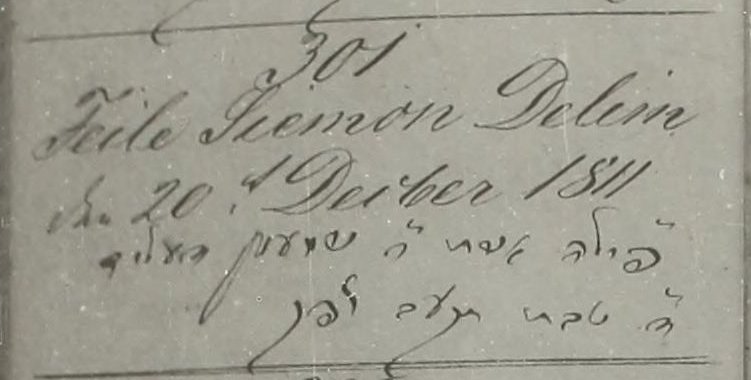 301
Feile Siemon Delim
den 20t Decber 1811
פילה אשת ה״ שמעון דעלים
ה״ טבת תקעב לפק